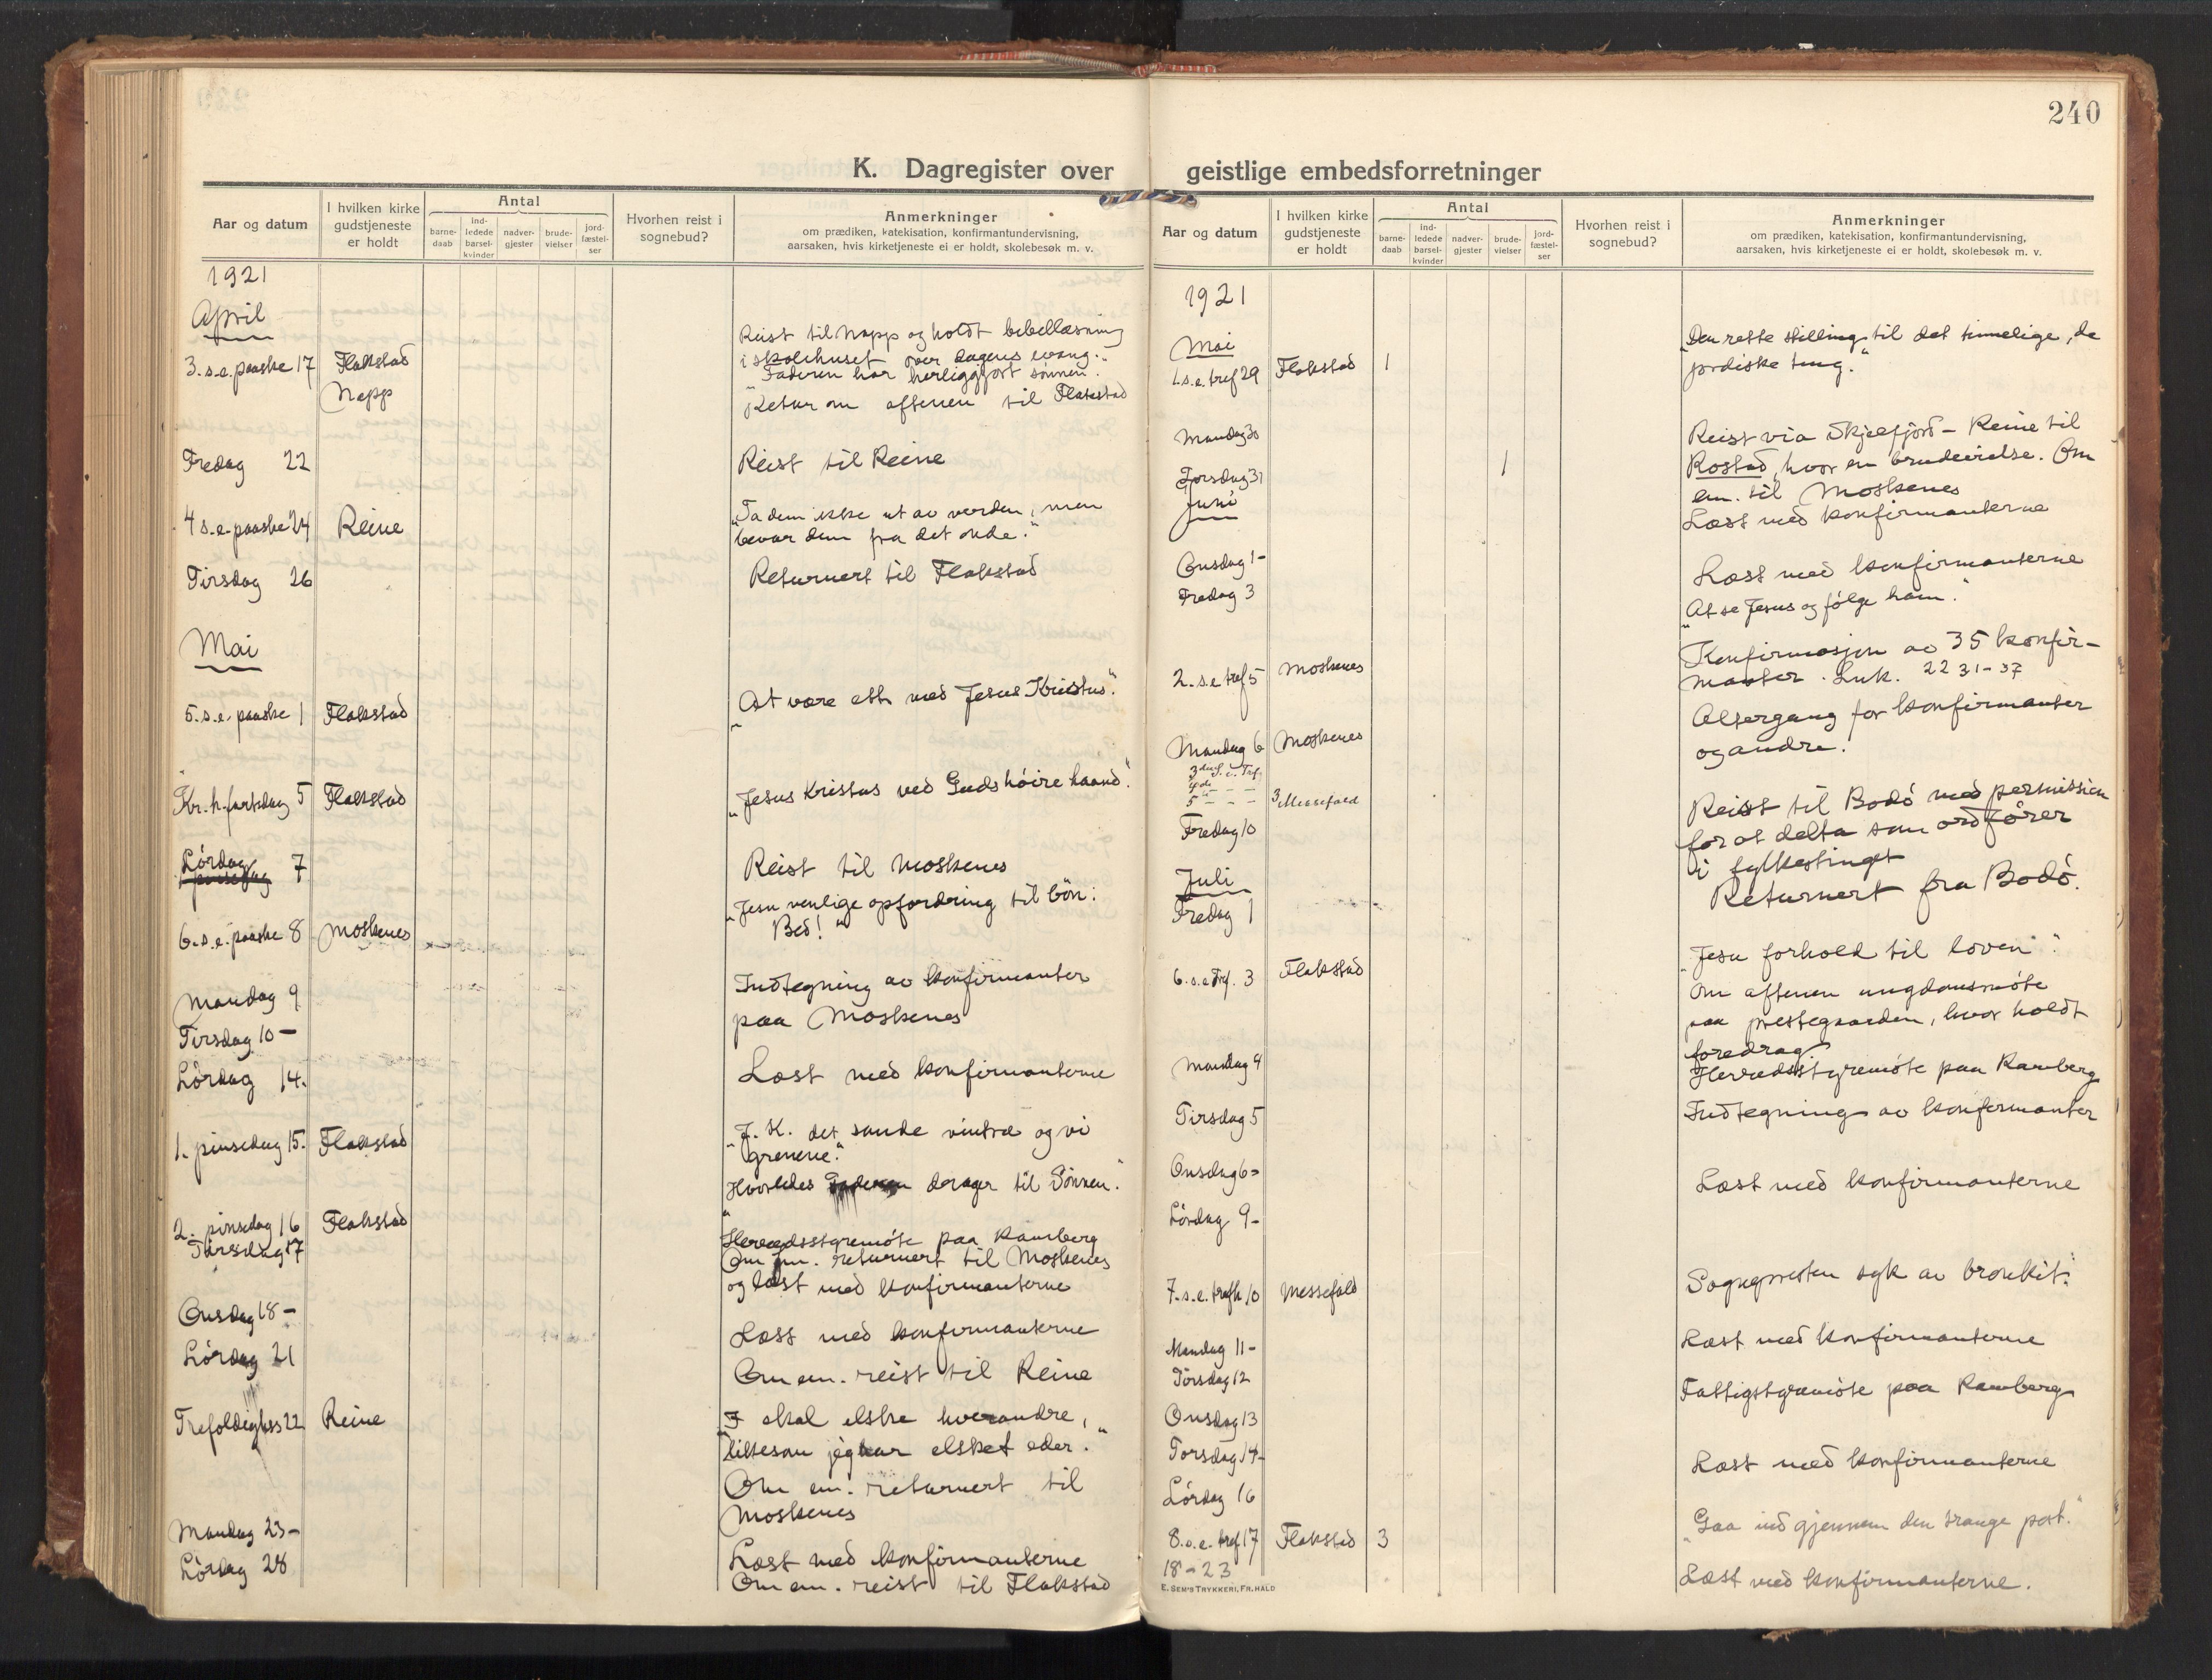 240
K. Dagregister over
geistlige embedsforretninger
Aar og datum
I hvilken kirke gudstjeneste er holdt
Antal
barne-daab
ind-ledede barsel-kvinder
nadver-gjester
brude-vielser
jord-fæstel-ser
Hvorhen reist i sognebud?
Anmerkninger
om prædiken, katekisation, konfirmantundervisning,
aarsaken, hvis kirketjeneste ei er holdt, skolebesøk m. v.
1921
April
3. s.e. paaske 17 Flakstad
Napp
Reist til Napp og holdt bibellæsning
i skolehuset over dagens evang.:
"Faderen har herliggjort sønnen."
Retur om aftenen til Flakstad
Fredag 22 Reist til Reine
4 s.e. paaske 24 Reine "Ta dem ikke ut av verden, men
bevar dem fra det onde."
Tirsdag 26 Returnert til Flakstad
Mai
5. s.e. paaske 1 Flakstad "At være ett med Jesus Kristus."
Kr. h. fartsdag 5 Flakstad "Jesus Kristus ved Guds høire haand."
Lördag 7 Reist til Moskenes
6. s.e. paaske 8 Moskenes "Jesu venlige opfordring til bön:
Bed!"
Mandag 9 Indtegning av konfirmanter
paa Moskenes
Tirsdag 10 –
Lördag 14. Læst med konfirmanterne
1. pinsedag 15. Flakstad "J. K. det sande vintræ og vi
grenene."
2. pinsedag 16 Flakstad "Hvorledes Faderen drager til Sönnen."
Tirsdag 17 Herredsstyremöte paa Ramberg
Om em. returnert til Moskenes
og læst med konfirmanterne
Onsdag 18 –
Lördag 21 Læst med konfirmanterne
Om em. reist til Reine
Trefoldighss 22 Reine "I skal elske hverandre,
likesom jeg har elsket eder."
Om em. returnert til
Moskenes
Mandag 23 –
Lördag 28 Læst med konfirmanterne
Om em. reist til Flakstad
Aar og datum
I hvilken kirke gudstjeneste er holdt
Antal
barne-daab
ind-ledede barsel-kvinder
nadver-gjester
brude-vielser
jord-fæstel-ser
Hvorhen reist i sognebud?
Anmerkninger
om prædiken, katekisation, konfirmantundervisning,
aarsaken, hvis kirketjeneste ei er holdt, skolebesøk m. v.
1921
Mai
1. s.e. tref 29 Flakstad 1 "Den rette stilling til det timelige, de
jordiske ting."
Mandag 30 Reist via Skjelfjord – Reine til
1 Rostad, hvor en brudevielse. Om
em. til Moskenes
Torsdag 31 Læst med konfirmanterne
Juni
Onsdag 1 –
Fredag 3 Læst med konfirmanterne
"At se Jesus og fölge ham."
2. s.e. tref 5 Moskenes Konfirmasjon av 35 konfir-
manter. Luk. 22 31-37
Mandag 6 Moskenes Altergang for konfirmanter
og andre.
3die S. e. Tref.
4de – – –
5 – – – 3 Messefald
Fredag 10 Reist til Bodö med permission
for at delta som ordförer
i fylkestinget
Juli
Fredag 1 Returnert fra Bodö.
6. s.e. Tref. 3 Flakstad "Jesu forhold til loven".
Om aftenen ungdomsmöte
paa prestegaarden, hvor holdt
foredrag
Mandag 4 Herredsstyremöte paa Ramberg
Tirsdag 5 Indtegning av konfirmanter
Onsdag 6 =
Lördag 9 – Læst med konfirmanterne
7. s.e. trefh 10 Messefald Sognepresten syk av bronkit.
Mandag 11 –
Tirsdag 12 Læst med konfirmanterne
Onsdag 13 Fattigstyremöte paa Ramberg
Torsdag 14 –
Lördag 16 Læst med konfirmanterne
8. s.e. tref 17 Flakstad 3 "Gaa ind gjennem den trange port."
18 – 23 Læst med konfirmanterne.
E. SEM'S TRYKKERI, FR.HALD